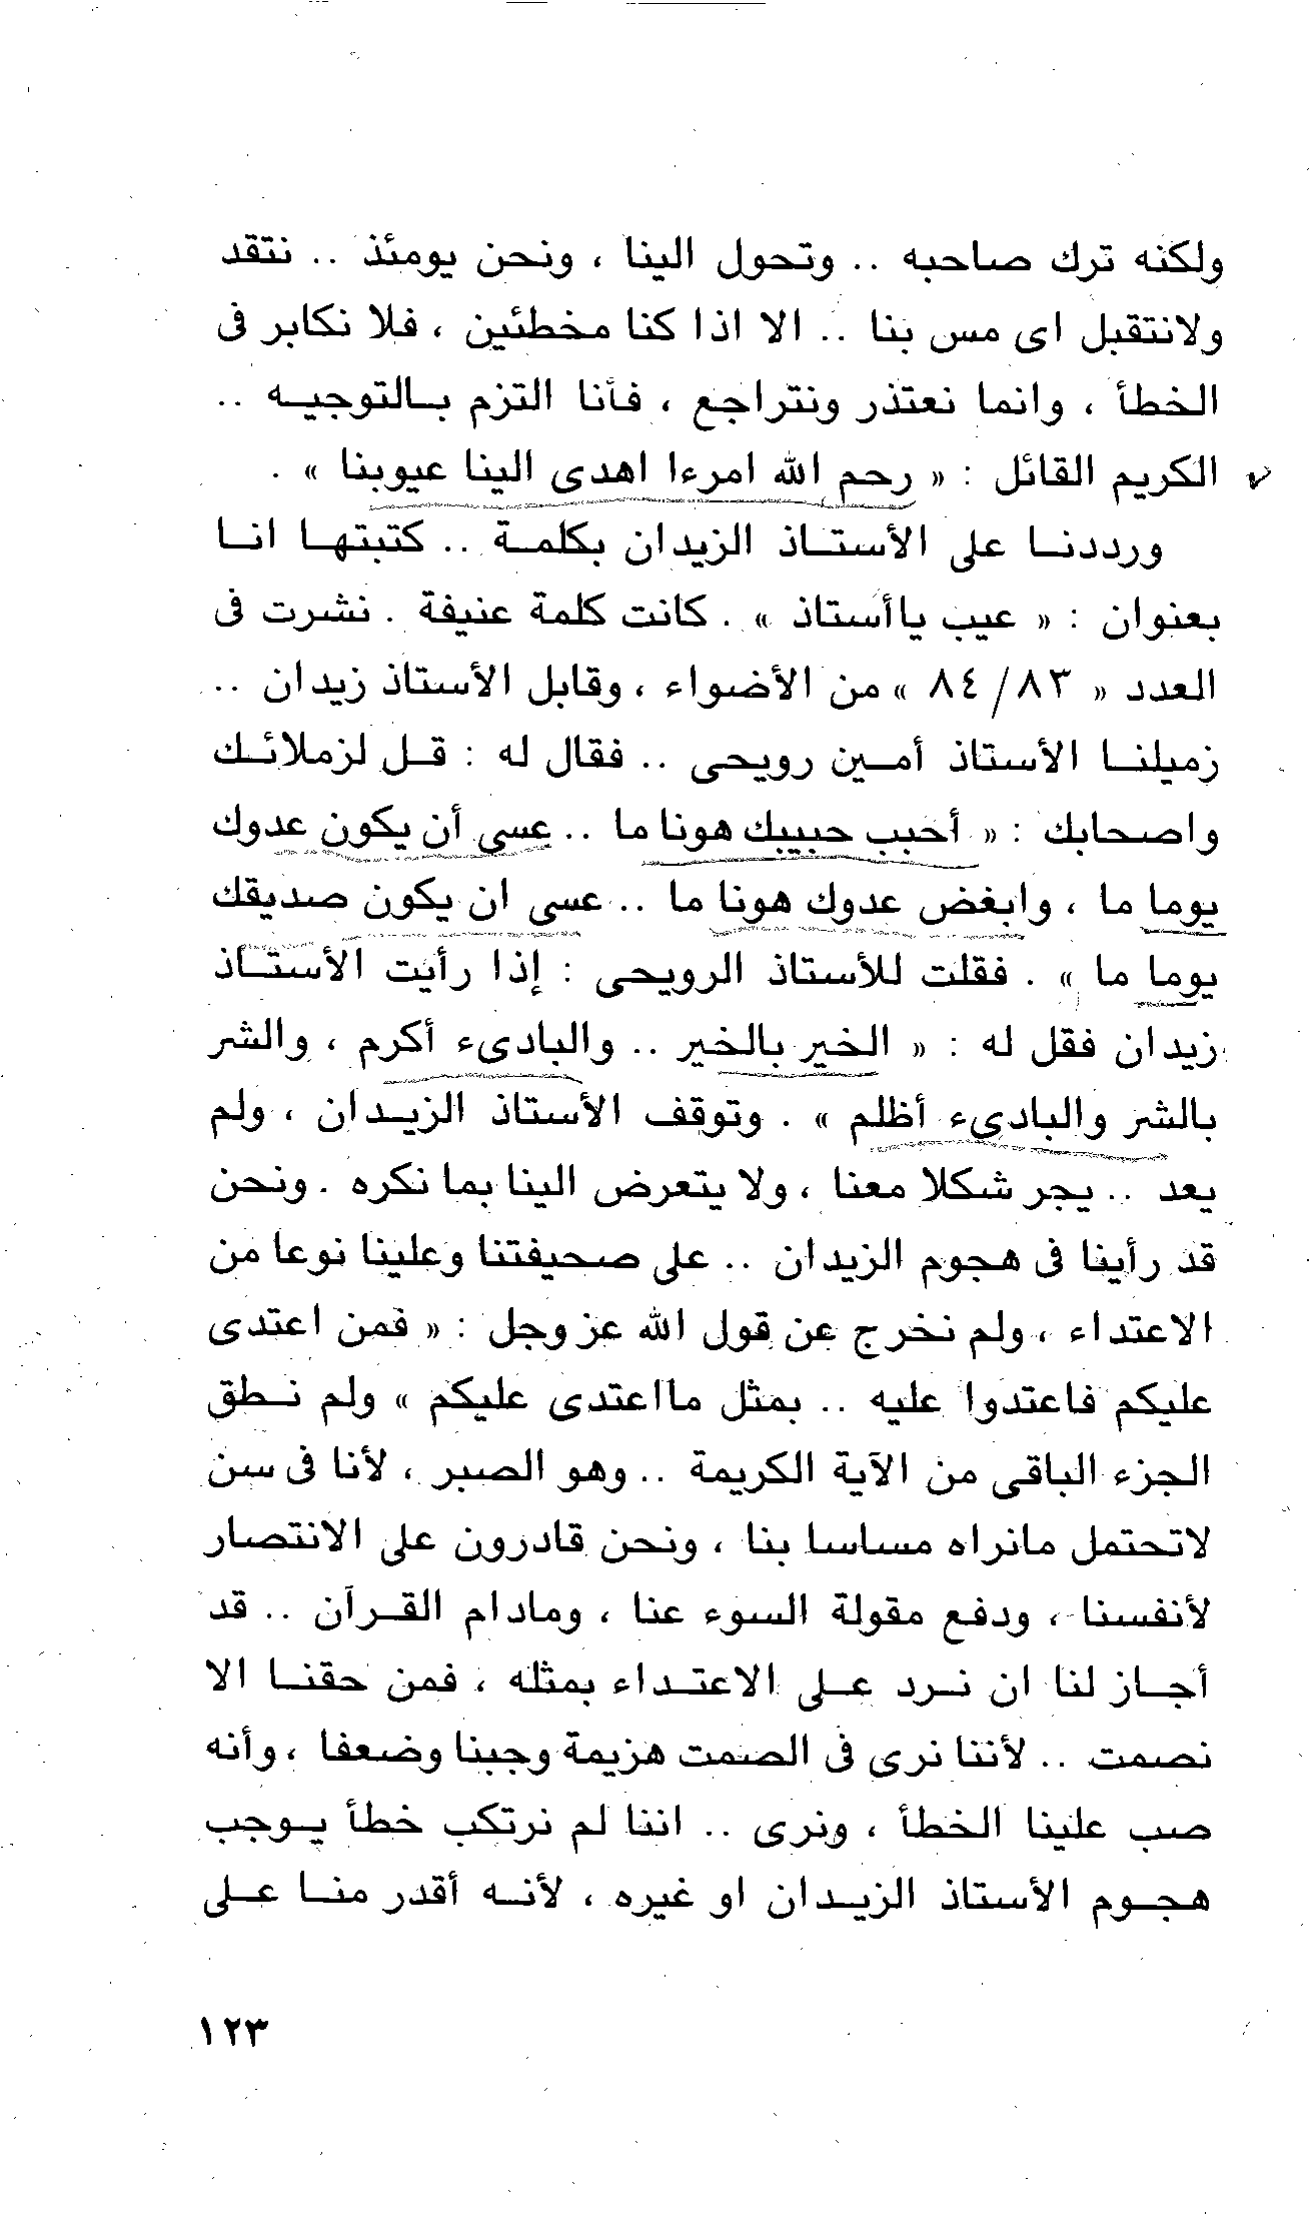 ولكنه ترك صاحبه .. وتحول الينا ، ونحن يومئذ .. نتقد
ولانتقبل اى مس بنا .. الا اذا كنا مخطئين ، فلا نكابر فى
الخطأ ، وانما نعتذر ونتراجع ، فأنا التزم بالتوجيه ..
الكريم القائل : « رحم الله امرءا اهدى الينا عيوبنا » .
ورددنا على الأستاذ الزيدان بكلمة .. كتبتها انا
بعنوان : « عيب ياأستاذ » . كانت كلمة عنيفة . نشرت فى
العدد « ٨٣/ ٨٤ » من الأضواء ، وقابل الأستاذ زيدان ..
زميلنا الأستاذ أمين رويحى .. فقال له : قل لزملائك
واصحابك : « أحبب حبيبك هونا ما .. عسى أن يكون عدوك
يوما ما ، وابغض عدوك هونا ما .. عسى ان يكون صديقك
يوما ما » . فقلت للأستاذ الرويحى : إذا رأيت الأستاذ
زيدان فقل له : « الخير بالخير .. والبادىء أكرم ، والشر
بالشر والبادىء أظلم » . وتوقف الأستاذ الزيدان ، ولم
يعد .. يجر شكلا معنا ، ولا يتعرض الينا بما نكره . ونحن
قد رأينا فى هجوم الزيدان .. على صحيفتنا وعلينا نوعا من
الاعتداء ، ولم نخرج عن قول الله عز وجل : « فمن اعتدى
عليكم فاعتدوا عليه .. بمثل مااعتدى عليكم » ولم نطق
الجزء الباقى من الآية الكريمة .. وهو الصبر ، لأنا فى سن
لاتحتمل مانراه مساسا بنا ، ونحن قادرون على الانتصار
لأنفسنا ، ودفع مقولة السوء عنا ، ومادام القرآن .. قد
أجاز لنا ان نرد على الاعتداء بمثله ، فمن حقنا الا
نصمت .. لأننا نرى فى الصمت هزيمة وجبنا وضعفا ، وأنه
صب علينا الخطأ ، ونرى .. اننا لم نرتكب خطأ يوجب
هجوم الأستاذ الزيدان او غيره ، لأنه أقدر منا على
١٢٣